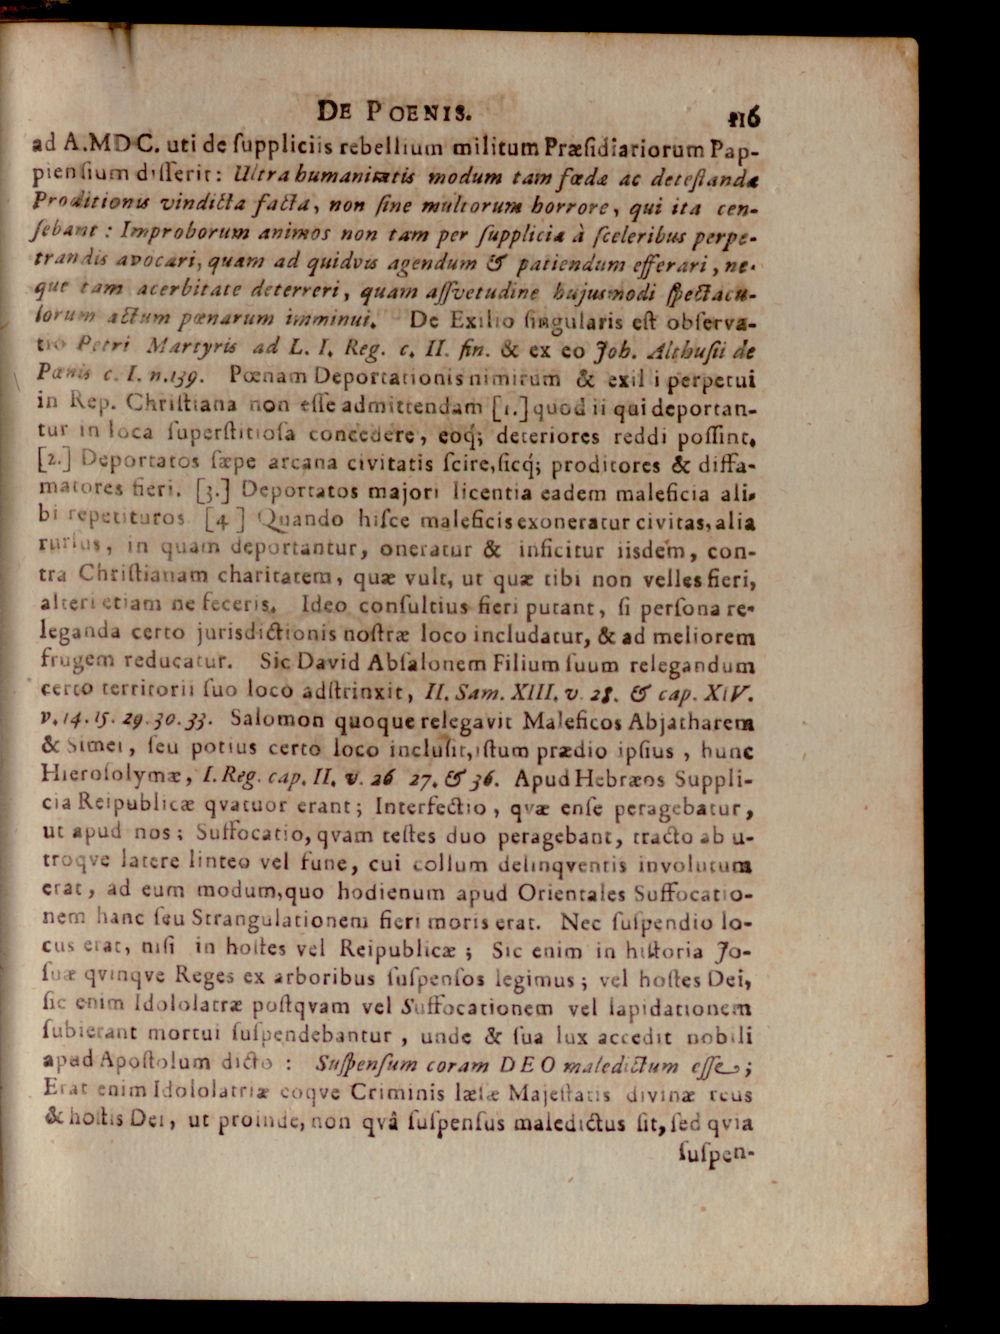 DE POENIS. 116
ad A.MDC. uti de ſuppliciis rebellium militum Præſidiariorum Pap-
pienſium diſſerit: Ultra humanitatis modum tam fœdæ ac deteſtandæ
Proditionis vindicta facta, non ſine multorum horrore, qui ita cen-
ſebant: Improborum animos non tam per ſupplicia à ſceleribus perpe-
trandis avocari, quam ad quidvis agendum & patiendum efferari, ne-
que tam acerbitate deterreri, quam aſſvetudine hujusmodi ſpectacu-
lorum actum pœnarum imminui. De Exilio ſingularis eſt obſerva-
tio Petri Martyris ad L. I. Reg. c. II. fin. & ex eo Joh. Althuſii de
Pœnis c. I. n.139. Pœnam Deportationis nimirum & exilii perpetui
in Rep. Chriſtiana non eſſe admittendam [1.] quod ii qui deportan-
tur in loca ſuperſtitioſa concedere, eoq́; deteriores reddi poſſint.
[2.] Deportatos ſæpe arcana civitatis ſcire, ſicq́; proditores & diffa-
matores fieri. [3.] Deportatos majori licentia eadem maleficia ali-
bi repetituros [4] Quando hiſce maleficis exoneratur civitas, alia
rurſus, in quam deportantur, oneratur & inficitur iisdem, con-
tra Chriſtianam charitatem, quæ vult, ut quæ tibi non velles fieri,
alteri etiam ne feceris. Ideo conſultius fieri putant, ſi perſona re-
leganda certo jurisdictionis noſtræ loco includatur, & ad meliorem
frugem reducatur. Sic David Abſalonem Filium ſuum relegandum
certo territorii ſuo loco adſtrinxit, II. Sam. XIII. v. 28. & cap. XIV.
v. 14. 15. 29. 30. 33. Salomon quoque relegavit Maleficos Abjatharem
& Simei, ſeu potius certo loco incluſit, iſtum prædio ipſius, hunc
Hieroſolymæ, I. Reg. cap. II. v. 26 27. & 36. Apud Hebræos Suppli-
cia Reipublicæ qvatuor erant; Interfectio, qvæ enſe peragebatur,
ut apud nos; Suffocatio, qvam teſtes duo peragebant, tracto ab u-
troqve latere linteo vel fune, cui collum delinqventis involutum
erat, ad eum modum, quo hodienum apud Orientales Suffocatio-
nem hanc ſeu Strangulationem fieri moris erat. Nec ſuſpendio lo-
cus erat, niſi in hoſtes vel Reipublicæ; Sic enim in hiſtoria Jo-
ſuæ qvinqve Reges ex arboribus ſuſpenſos legimus; vel hoſtes Dei,
ſic enim Idololatræ poſtqvam vel Suffocationem vel lapidationem
ſubierant mortui ſuſpendebantur, unde & ſua lux accedit nobili
apud Apoſtolum dicto: Suſpenſum coram DEO maledictum eſſe;
Erat enim Idololatriæ eoqve Criminis læſæ Majeſtatis divinæ reus
& hoſtis Dei, ut proinde, non qvâ ſuſpenſus maledictus ſit, ſed qvia
ſuſpen-